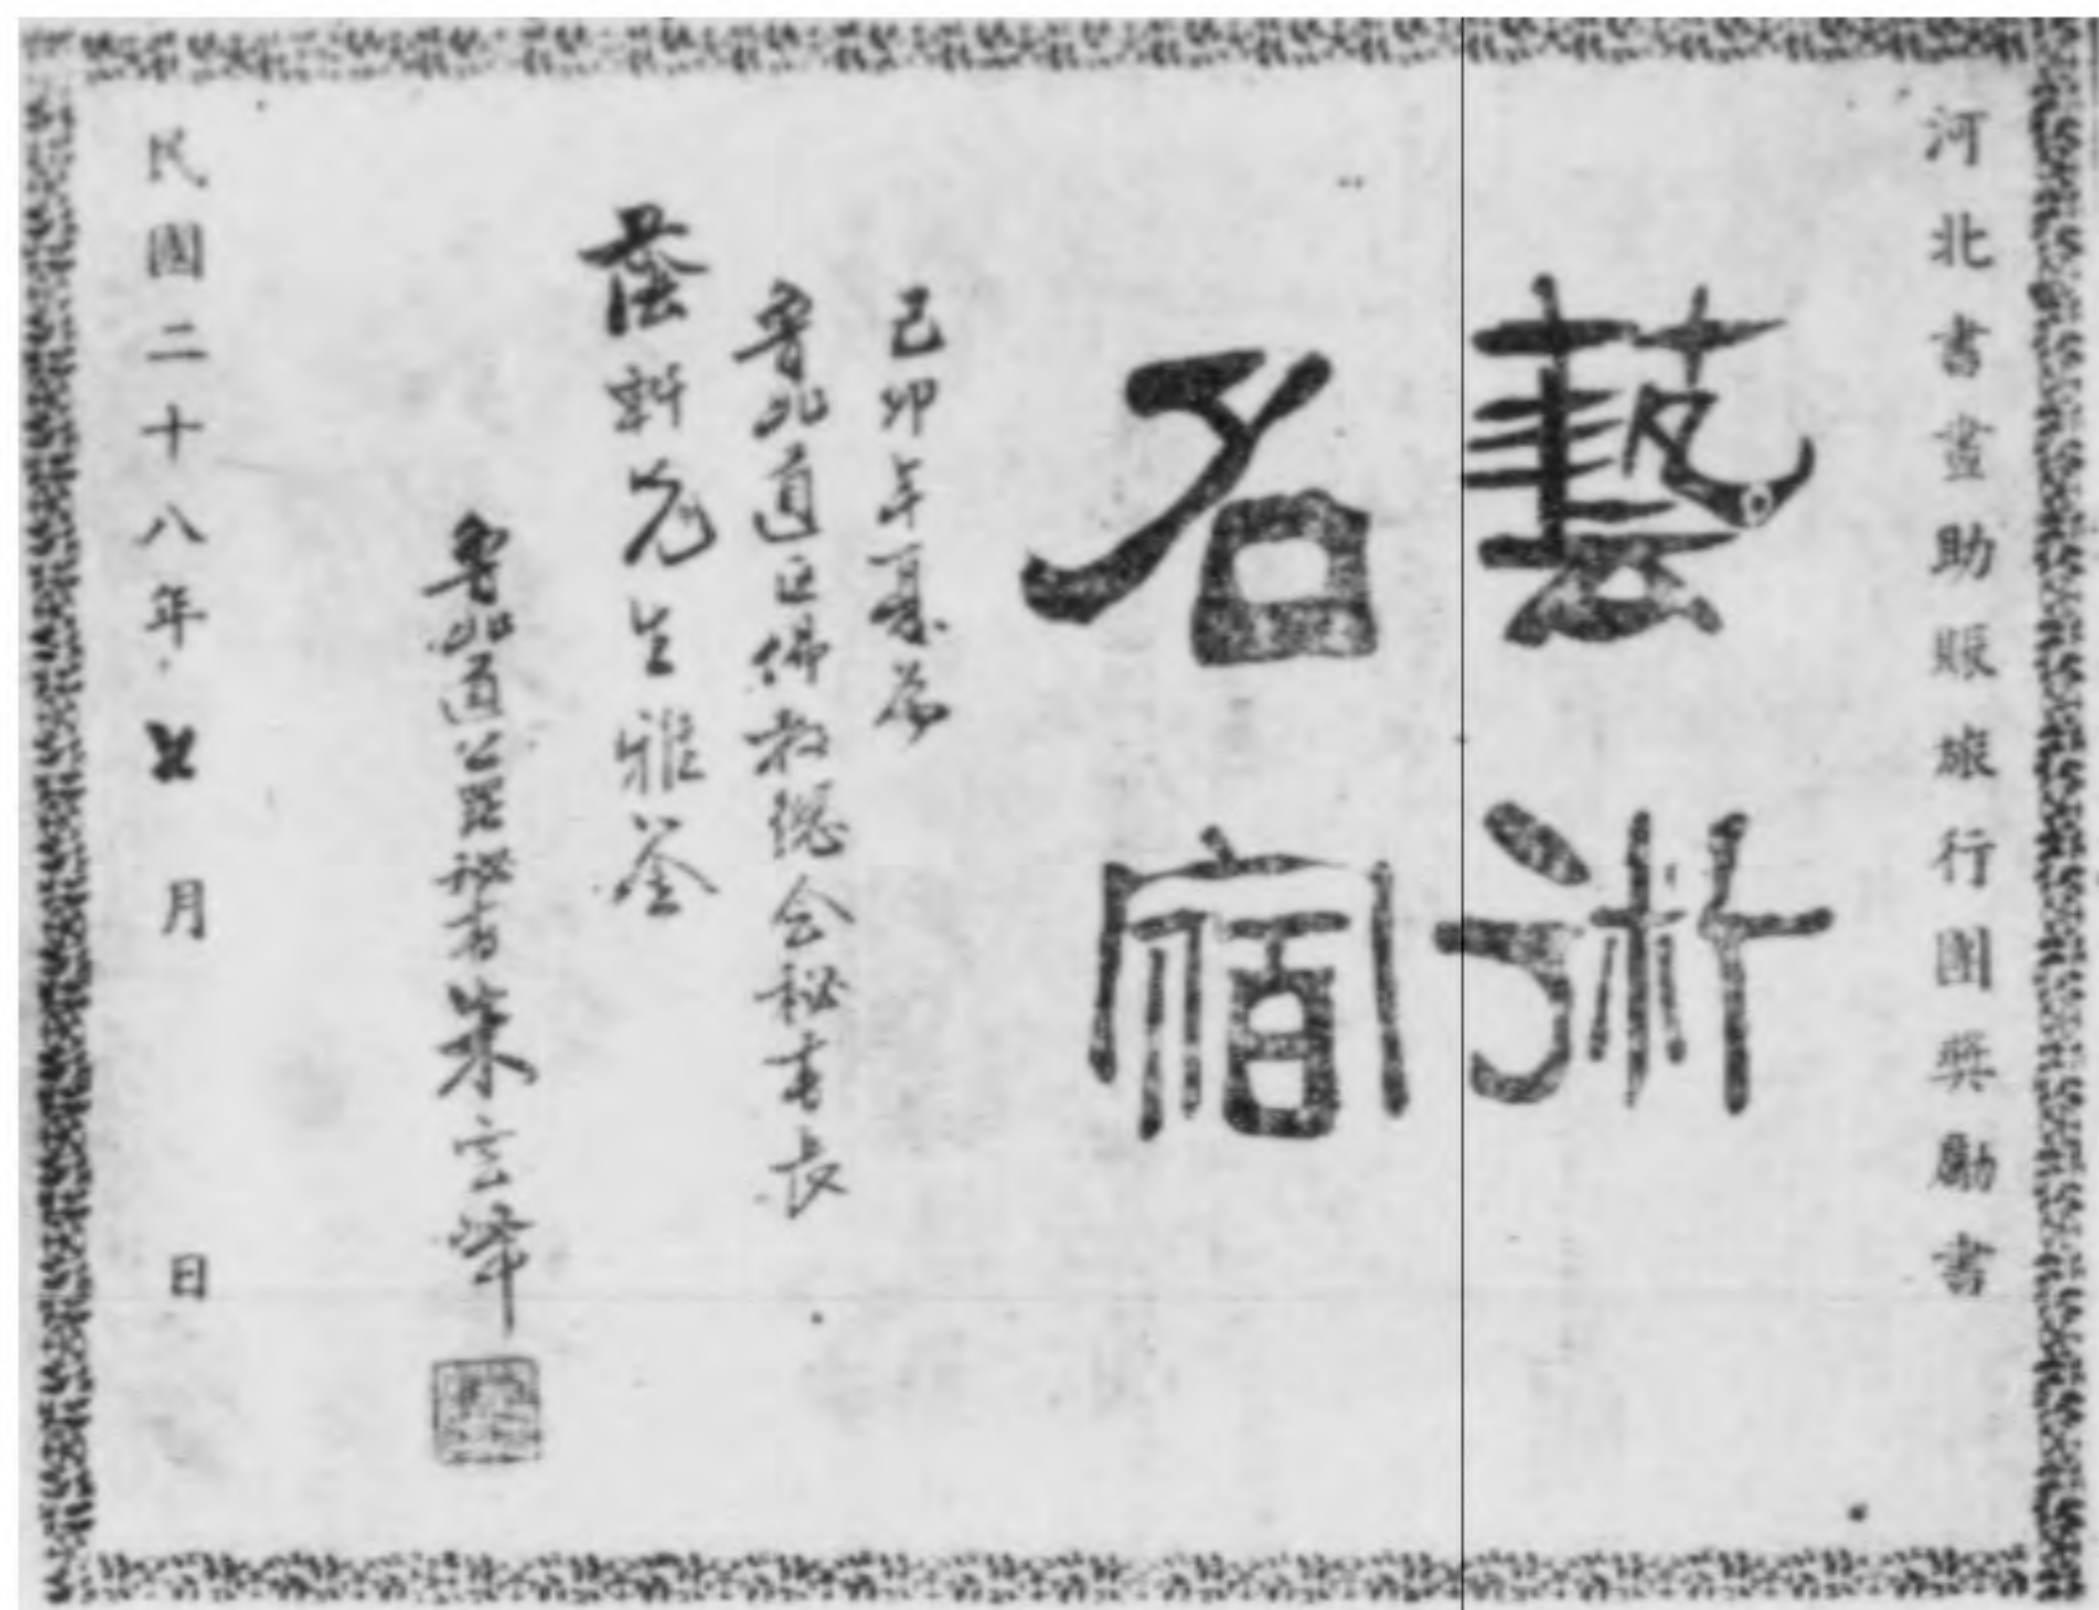 河北書畫助賑旅行團奬勵書
藝術
名宿
己卯年夏為
魯北道區佛教總会秘書長
蔭軒先生雅鉴
魯北道公署秘書朱雲峰
民國二十八年 月 日